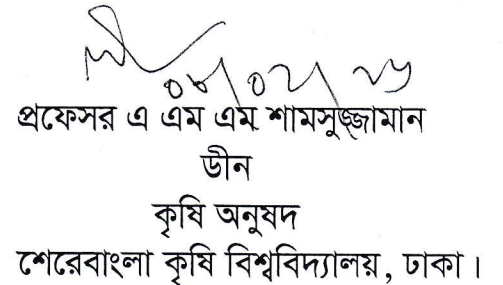 ০৮/০২/২৬
প্রফেসর এ এম এম শামসুজ্জামান
ডীন
কৃষি অনুষদ
শেরেবাংলা কৃষি বিশ্ববিদ্যালয়, ঢাকা।